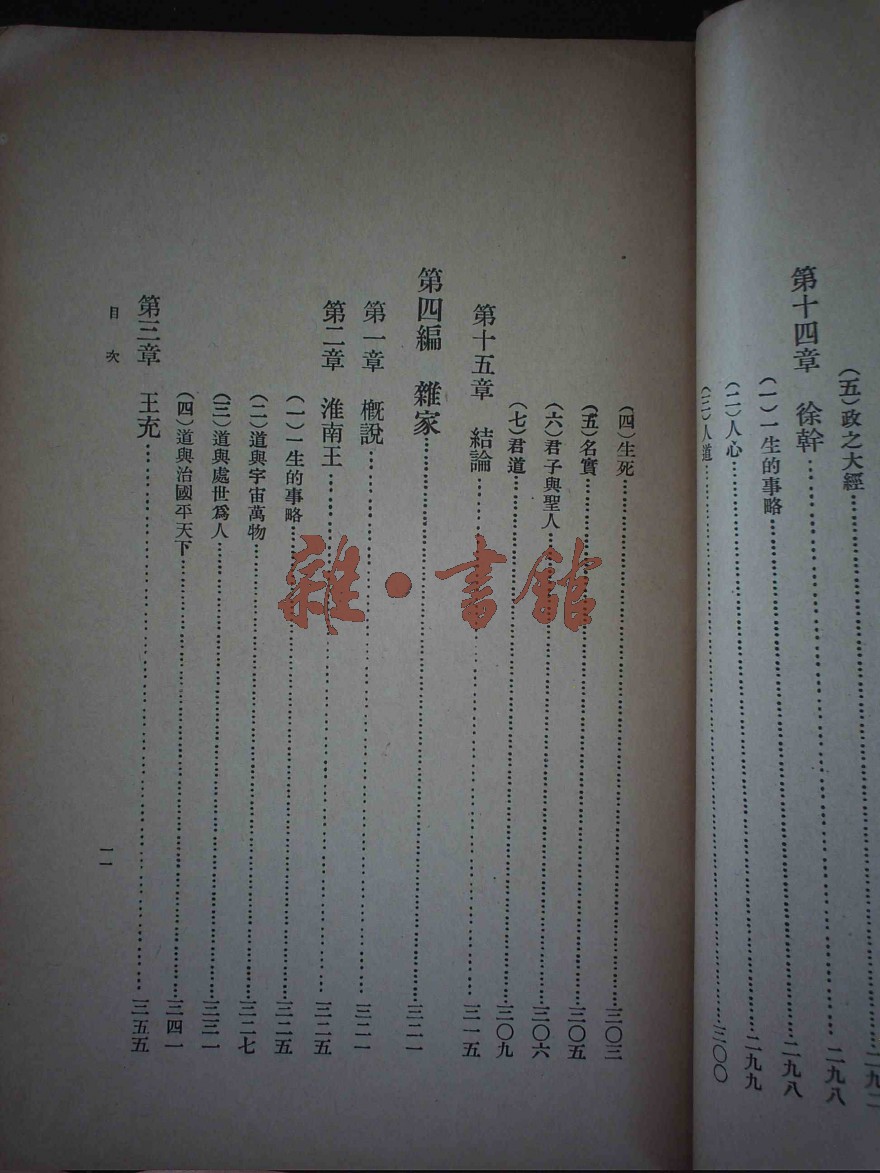 (五)政之大經……二九二
第十四章 徐幹……二九八
(一)一生的事略……二九八
(二)人心……二九九
(三)人道……三〇〇
(四)生死……三〇三
(五)名實……三〇五
(六)君子與聖人……三〇六
(七)君道……三〇九
第十五章 結論……三一五
第四編 雜家……三二一
第一章 槪說……三二一
第二章 淮南王……三二五
(一)一生的事略……三二五
(二)道與宇宙萬物……三二七
(三)道與處世爲人……三三一
(四)道與治國平天下……三四一
第三章 王充……三五五
目次
一一
雜·書館